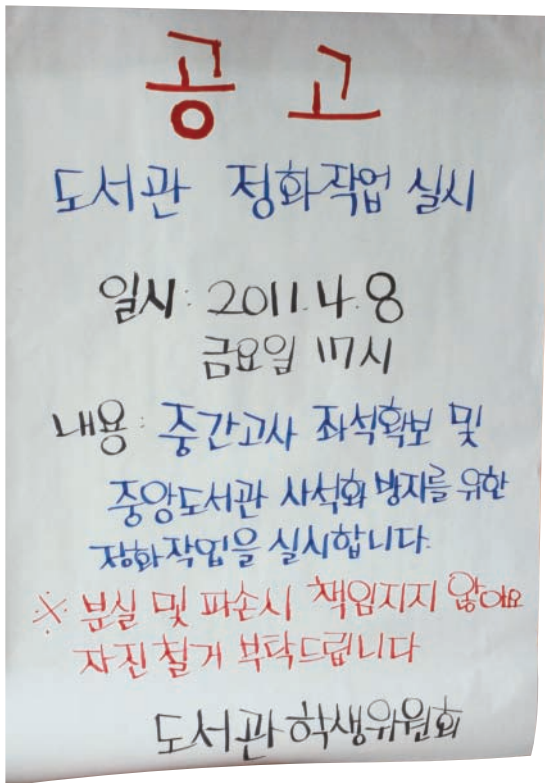 공고
도서관 정화작업 실시
일시: 2011.4.8
금요일 17시
내용: 중간고사 좌석확보 및
중앙도서관 사석화 방지를 위한
정화작업을 실시합니다.
※ 분실 및 파손시 책임지지 않아요
자진철거 부탁드립니다
도서관학생위원회